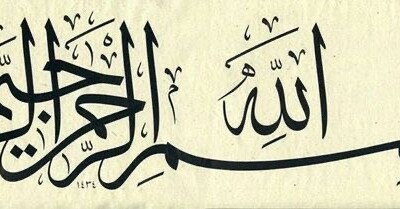 سمِ اللهِ الرحمن الرحيم
١٤٣٤